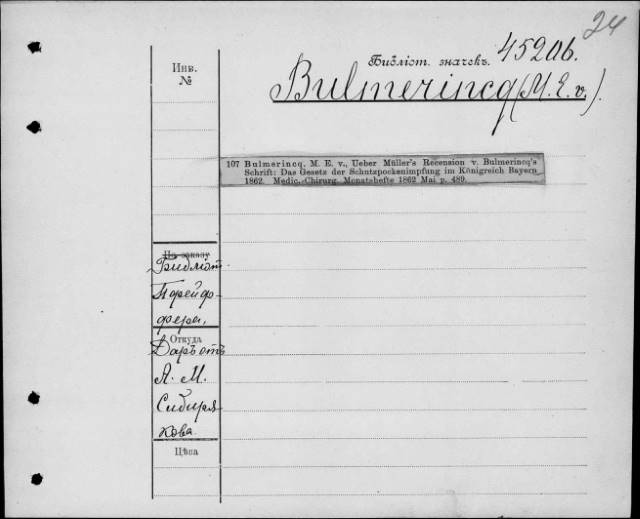 24
Библіот. значекъ. 4520б.
Инв.
№
Bulmerincq (M. E. v.).
107 Bulmerincq, M. E. v., Ueber Müller's Recension v. Bulmerincq's
Schrift: Das Gesetz der Schutzpockenimpfung im Königreich Bayern
1862. Medic.-Chirurg. Monatshefte 1862 Mai p. 489.
По заказу
Библіот.
Пфейф-
фера,
Откуда
Даръ отъ
А. М.
Сибиря-
кова
Цѣна